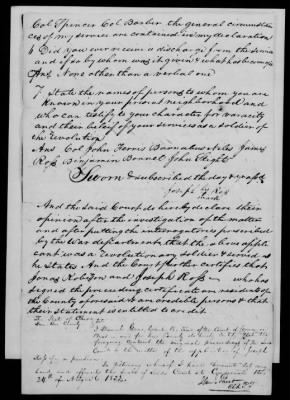 Col Spencer Col Barber the general circumstan
ces of my services are contained in my declaration
6 Did you ever receive a discharge from the service
and if so by whom was it given & what has become of it
Ans None other than a verbal one
7 State the names of persons to whom you are
known in your present neighborhood and
who can testify to your character for veracity
and their belief of your services as a soldier of
the revolution
Ans Col John Ferris Barnabas James
Ross Benjamin Bonnel John Flight
Sworn & subscribed the day & year afsd
Joseph Ross
mark
And the said Court do hereby declare their
opinion after the investigation of the matter
and after putting the interrogatories prescribed
by the War department, that the above appli
cant was a revolutionary soldier & served as
he states And the Court further certifies that
Jonas and Joseph Ross who has
signed the preceding certificate are residents of
the County aforesaid & are credible persons & that
their statement is entitled to credit
the original proceedings of the said
Court in the matter of the application of Joseph
Ross for a pension
In testimony whereof I have hereunto set my
hand and affixed the seal of said Court at this
28th of August 1832